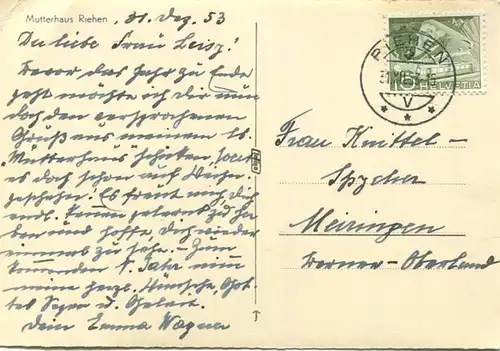 Mutterhaus Riehen, 31. Dez. 53
Du liebe Frau Beisy!
Bevor das Jahr zu Ende
geht möchte ich dir nun
doch den versprochenen
Gruß aus meinem lb.
"Mutterhaus" schicken,
es doch schon auf
geschehn! Es freut mich, dich
endl. kennen gelernt zu ha-
ben und hoffe, dich wieder
einmal zu sehn. - Zum
kommenden N. Jahr nimm
meine herzl. Wünsche, Got-
tes Segen u. Geleit.
Dein Emma Wagner
RIEHEN
31.XII.53
V
10
HELVETIA
Frau Knittel-
Spycher
Meiringen
Berner-Oberland